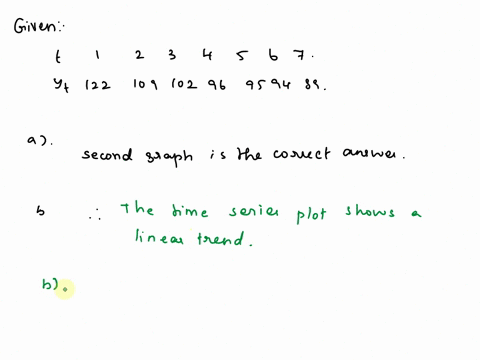 Given:-
t 1 2 3 4 5 6 7.
yt 122 109 102 96 95 94 89.
a).
second graph is the correct answer.
b ∴ The time series plot shows a
linear trend.
b).